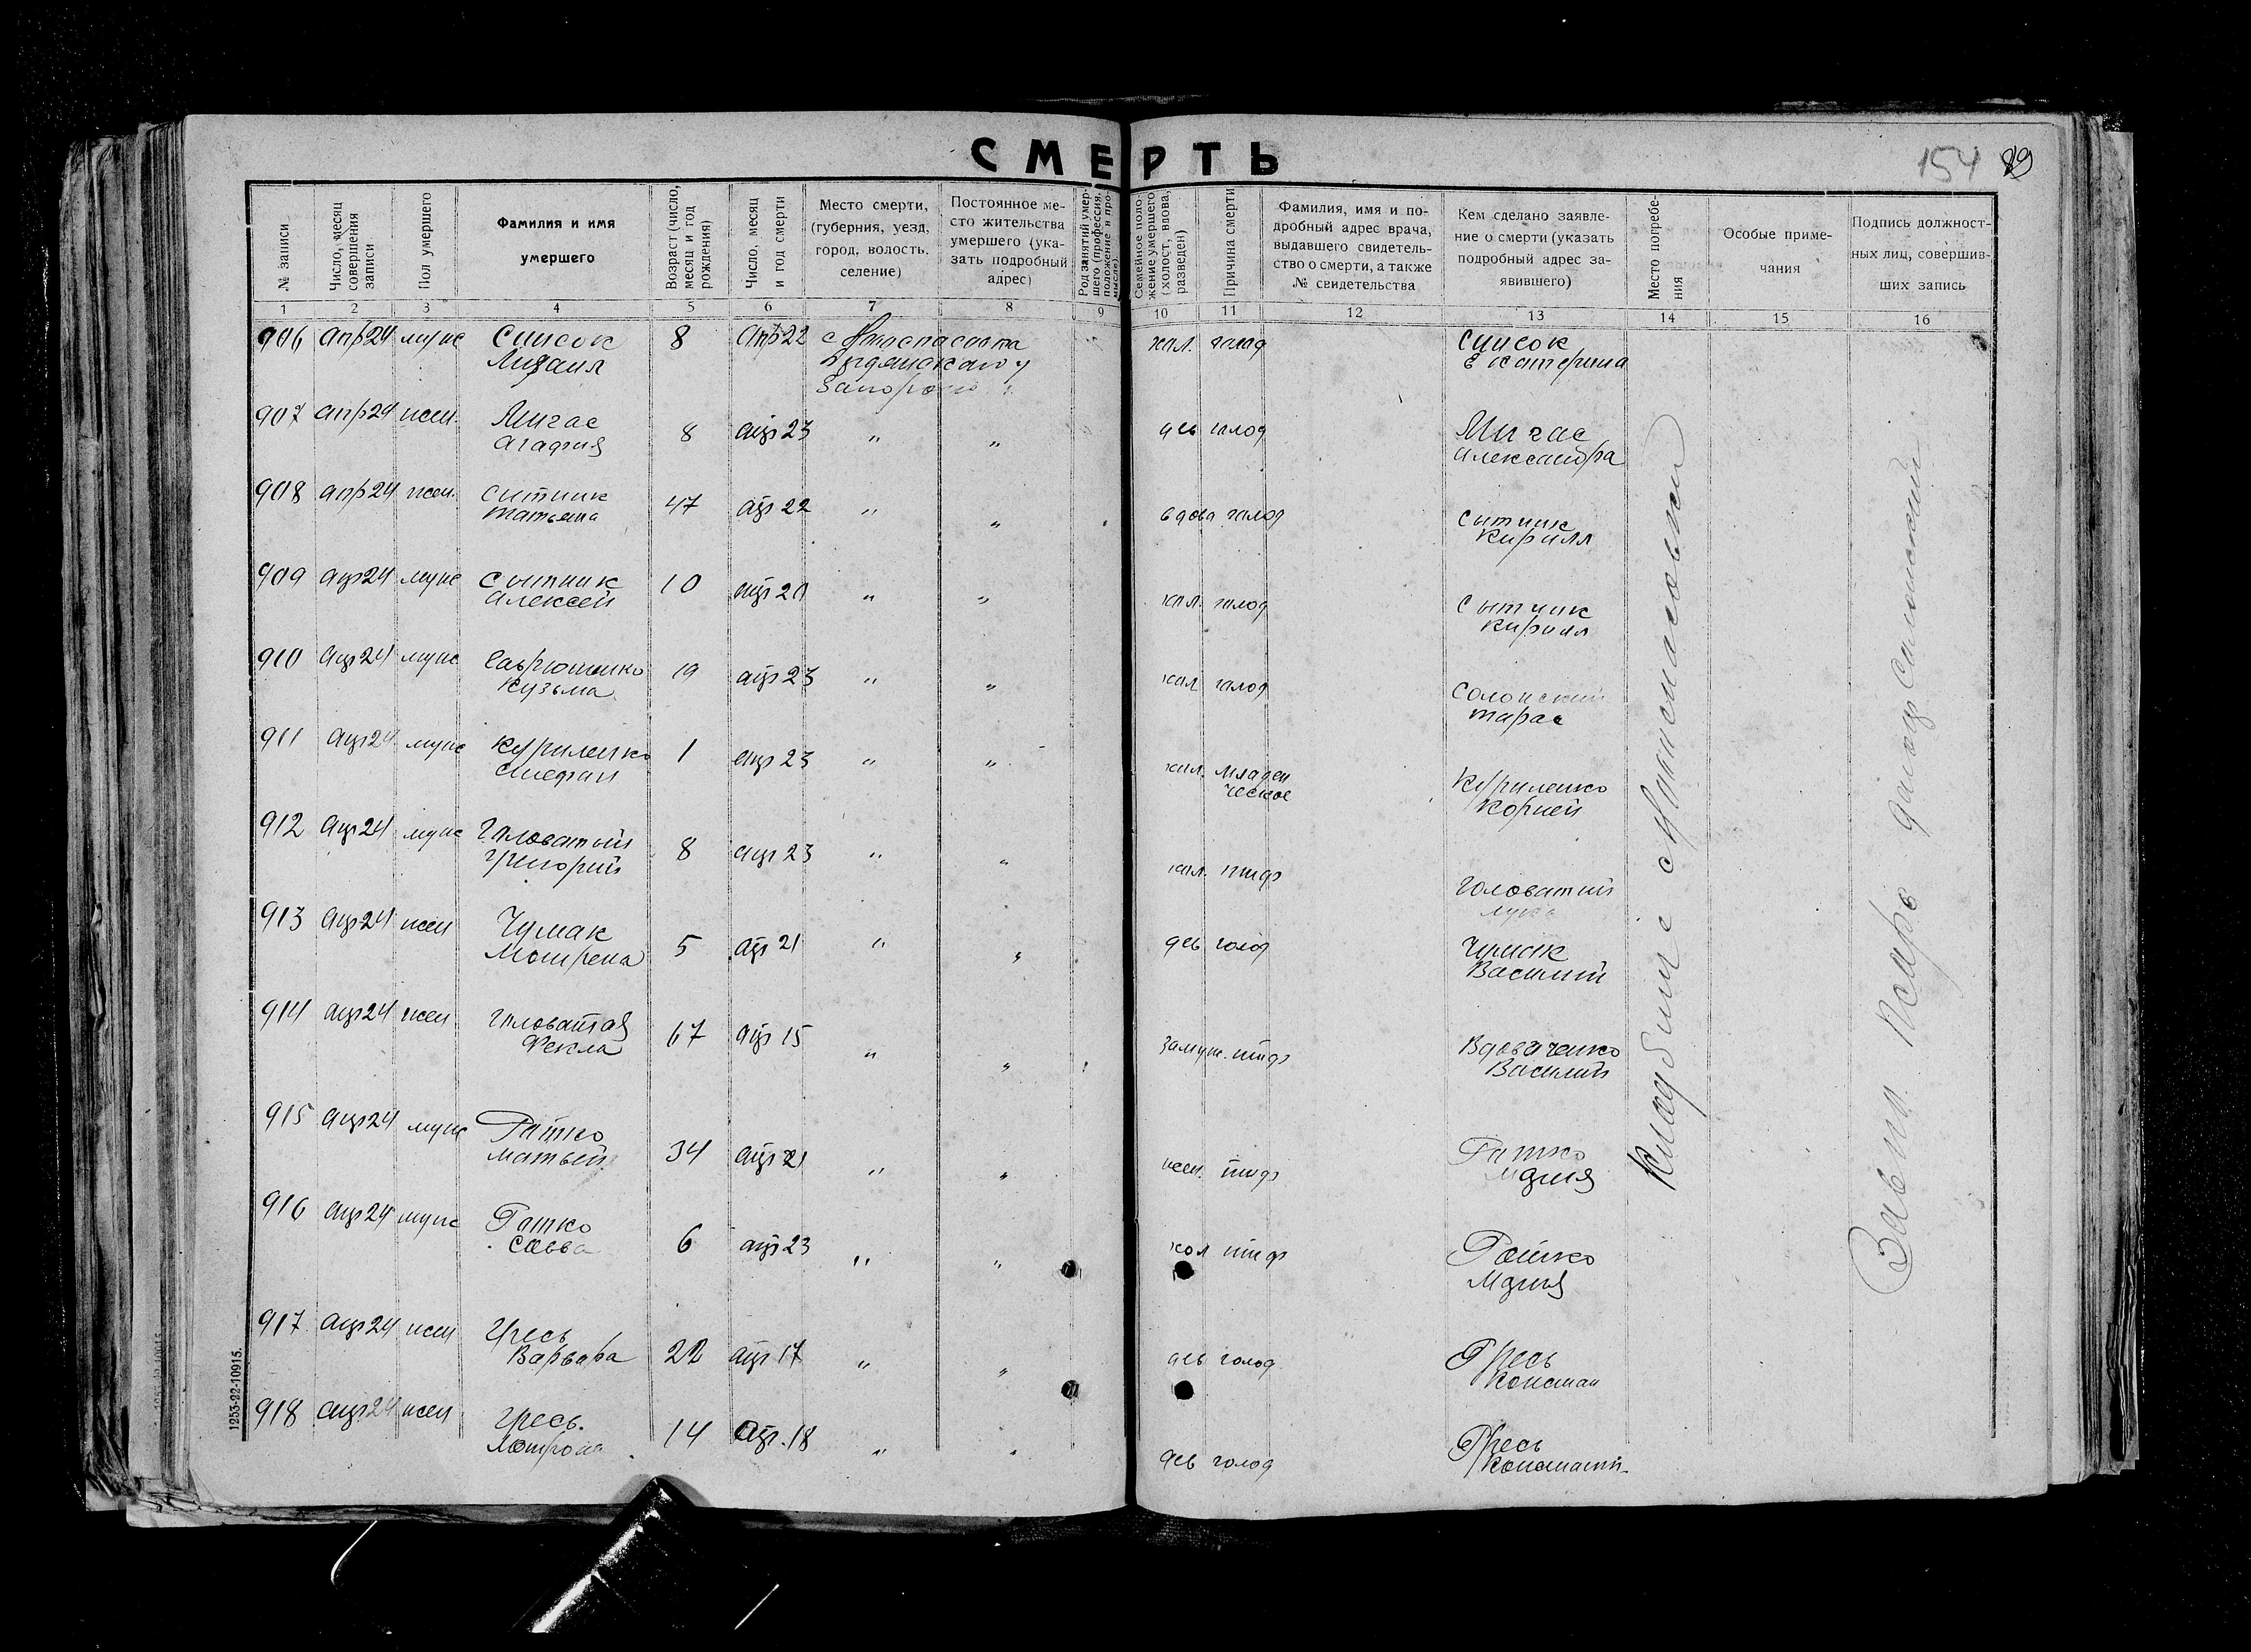 СМЕРТЬ
154 89
№ записи
Число, месяц совершения записи
Пол умершего
Фамилия и имя умершего
Возраст (число, месяц и год рождения)
Число, месяц и год смерти
Место смерти, (губерния, уезд, город, волость, селение)
Постоянное место жительства умершего (указать подробный адрес)
Род занятий умершего (профессия, положение в промысле)
Семейное положение умершего (холост, вдова, разведен)
Причина смерти
Фамилия, имя и подробный адрес врача, выдавшего свидетельство о смерти, а также № свидетельства
Кем сделано заявление о смерти (указать подробный адрес заявившего)
Место погребения
Особые примечания
Подпись должностных лиц, совершивших запись
1 2 3 4 5 6 7 8 9 10 11 12 13 14 15 16
906 апр 24 муж Список 8 апр 22 с хол. голод Список
Екатерина
907 апр 24 жен. Мигас 8 апр 23 " " дев голод Мигас
Агафия Александра
908 апр 24 жен. Ситник 47 апр 22 " " вдова голод Сытник
Татьяна Кирилл
909 апр 24 муж Сытник 10 апр 20 " " хол. голод Сытник
Алексей Кирилл
910 апр 24 муж Гаврюшенко 19 апр 23 " " хол голод Солонский
Кузьма Тарас
911 апр 24 муж Куриленко 1 апр 23 " " хол. младен Куриленко
Стефан ческое Корней
912 апр 24 муж Головатый 8 апр 23 " " хол. тиф Головатий
Григорий Лука
913 апр 24 жен Чумак 5 апр 21 " " дев голод Чумак
Мотрена Василий
914 апр 24 жен Головатая 67 апр 15 " " замуж. тиф Вдовиченко
Фекла Василий
915 апр 24 муж Ратко 34 апр 21 " " жен. тиф Ратко
Матвей Мария
916 апр 24 муж Ратко 6 апр 23 " " хол тиф Ратко
Савва Мария
917 апр 24 жен Гресь 22 апр 17 " " дев голод Гресь
Варвара Констан
918 апр 24 жен Гресь. 14 апр. 18 " " дев голод Гресь
Мотрона Константи
Кладбище с
1253-22-10915.